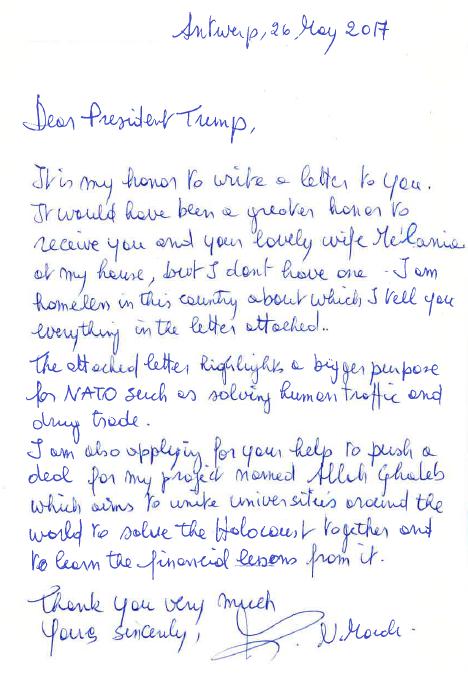 Antwerp, 26 May 2017
Dear President Trump,
It is my honor to write a letter to you.
It would have been a greater honor to
receive you and your lovely wife Mélania
at my house, but I dont have one - I am
homeless in this country about which I tell you
everything in the letter attached..
The attached letter highlights a bigger purpose
for NATO such as solving human traffic and
drug trade.
I am also applying for your help to push a
deal for my project named Allah Ghaleb
which aims to unite universities around the
world to solve the Holocaust together and
to learn the financial lessons from it.
Thank you very much
Yours sincerly, N.